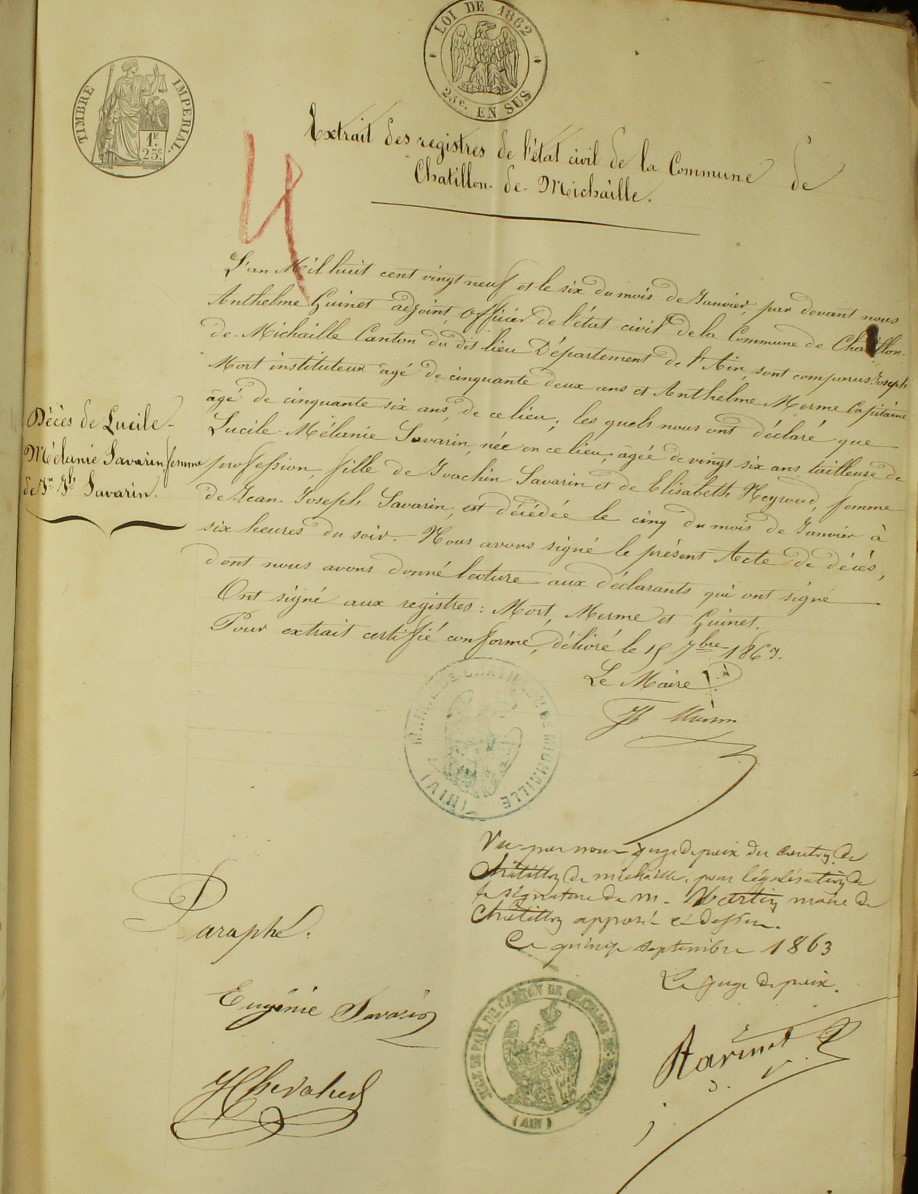 LOI DE 1862
25c. EN SUS
TIMBRE IMPERIAL.
1f.
25c.
Extrait des registres de l'état civil de la Commune de
Chatillon-de-Michaille.
L'an Mil huit cent vingt neuf et le six du mois de Janvier, par devant nous
Anthelme Guinet adjoint officier de l'état civil de la Commune de Chatillon-
de-Michaille Canton du dit lieu Département de l'Ain, sont comparus Joseph
Mort instituteur agé de cinquante deux ans et Anthelme Merme Capitaine
agé de cinquante six ans, de ce lieu; les quels nous ont déclaré que
Lucile-Mélanie Savarin, née en ce lieu, agée de vingt six ans tailleuse de
profession fille de Joachin Savarin et de Elisabeth Neyroud, femme
de Jean-Joseph Savarin, est décédée le cinq du mois de Janvier à
six heures du soir. Nous avons signé le présent Acte de décès,
dont nous avons donné lecture aux déclarants qui ont signé
Ont signé aux registres: Mort, Merme et Guinet.
Pour extrait certifié conforme, délivré le 15 7bre 1863.
Le Maire
Décès de Lucile-
Mélanie Savarin femme
de Jn. Jh. Savarin.
DE MICHAILLE
(AIN)
Vu par nous juge de paix du canton de
Châtillon de michaille, pour légalisation de
la signature de m. Martin maire de
Châtillon apposée ci dessus.
Ce quinze septembre 1863
Le juge de paix.
Paraphé.
Eugénie Savarin
JUGE DE PAIX DU CANTON DE CHATILLON DE MICHAILLE
(AIN)